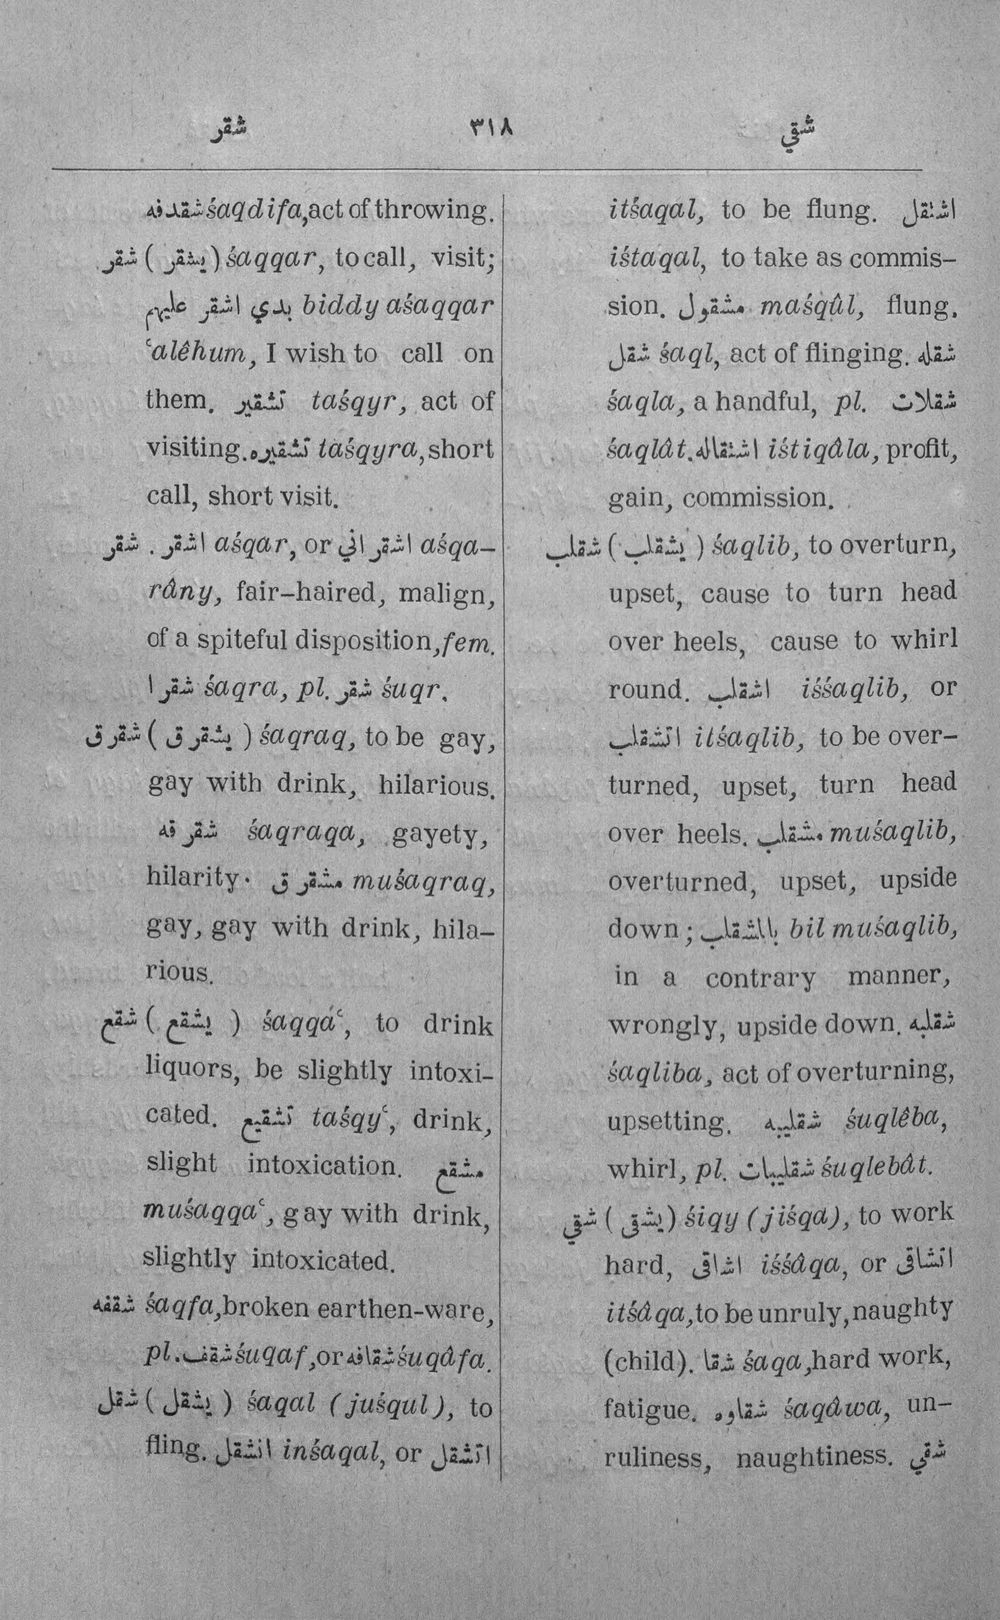 شقر ٣١٨ شقي
شقدفه śaqdifa, act of throwing.
شقر ( يشقر ) śaqqar, to call, visit;
بدي اشقر عليهم biddy aśaqqar
ʿalêhum, I wish to call on
them. تشقير taśqyr, act of
visiting. تشقيره taśqyra, short
call, short visit.
شقر . اشقر aśqar, or اشقراني aśqa–
râny, fair–haired, malign,
of a spiteful disposition, fem.
شقرا śaqra, pl. شقر śuqr.
شقرق ( يشقرق ) śaqraq, to be gay,
gay with drink, hilarious.
شقرقه śaqraqa, gayety,
hilarity. مشقرق muśaqraq,
gay, gay with drink, hila–
rious.
شقع ( يشقع ) śaqqaʿ, to drink
liquors, be slightly intoxi–
cated. تشقيع taśqyʿ, drink,
slight intoxication. مشقع
muśaqqaʿ, gay with drink,
slightly intoxicated.
شقفه śaqfa, broken earthen-ware,
pl. شقف śuqaf, or شقافه śuqâfa.
شقل ( يشقل ) śaqal (juśqul), to
fling. انشقل inśaqal, or اتشقل
itśaqal, to be flung. اشتقل
iśtaqal, to take as commis–
sion. مشقول maśqûl, flung.
شقل śaql, act of flinging. شقله
śaqla, a handful, pl. شقلات
śaqlât. اشتقاله iśtiqâla, profit,
gain, commission.
شقلب ( يشقلب ) śaqlib, to overturn,
upset, cause to turn head
over heels, cause to whirl
round. اشقلب iśśaqlib, or
اتشقلب itśaqlib, to be over–
turned, upset, turn head
over heels. مشقلب muśaqlib,
overturned, upset, upside
down ; بالمشقلب bil muśaqlib,
in a contrary manner,
wrongly, upside down. شقلبه
śaqliba, act of overturning,
upsetting. شقليبه śuqlêba,
whirl, pl. شقليبات śuqlebât.
شقي ( يشقى ) śiqy (jiśqa), to work
hard, اشاقى iśśâqa, or اتشاقى
itśâqa, to be unruly, naughty
(child). شقا śaqa, hard work,
fatigue. شقاوه śaqâwa, un–
ruliness, naughtiness. شقي